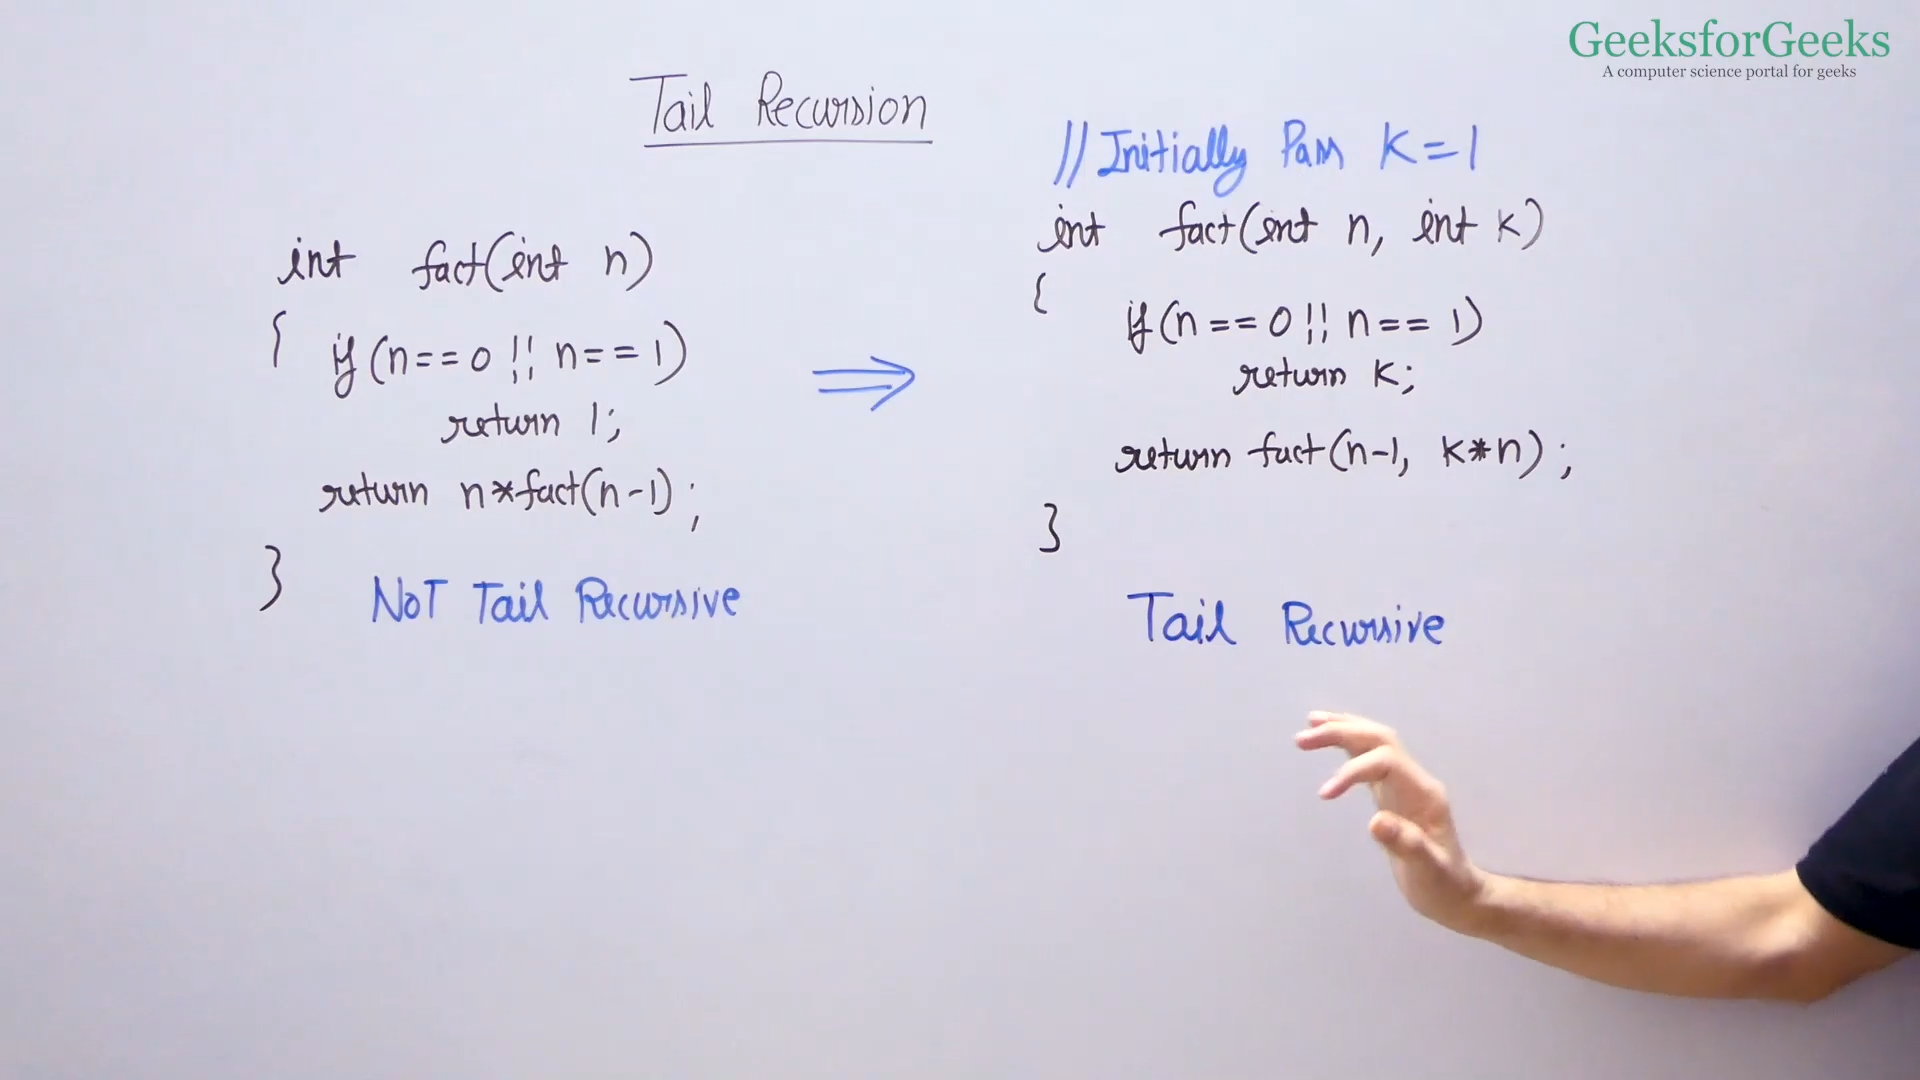 GeeksforGeeks
A computer science portal for geeks
Tail Recursion
int fact(int n)
{ if(n==0 || n==1)
return 1;
return n*fact(n-1);
}
NOT Tail Recursive
// Initially Pass K=1
int fact(int n, int k)
{
if(n==0 || n==1)
return k;
return fact(n-1, k*n);
}
Tail Recursive